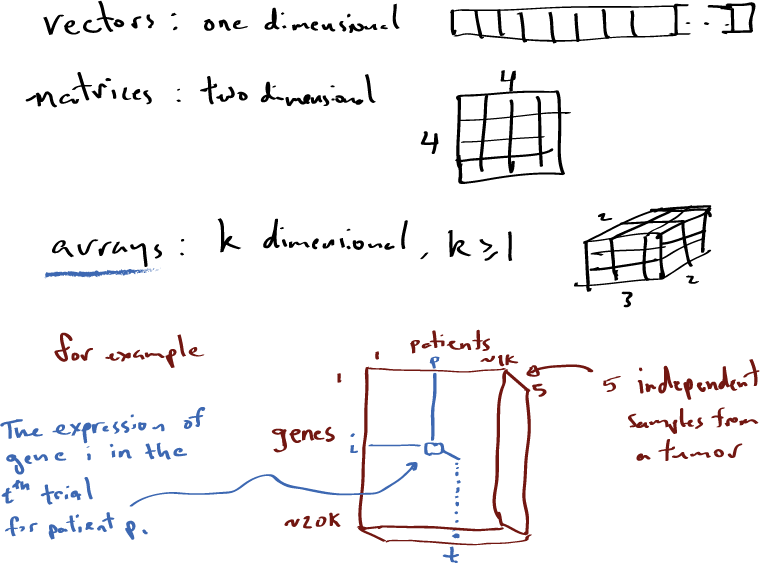 vectors: one dimensional
...
matrices: two dimensional
4
4
arrays: k dimensional, k ≥ 1
2
3
2
for example
patients
1
p
~1K
1
5
5 independent
samples from
a tumor
The expression of
gene i in the
tth trial
for patient p.
genes
i
~20K
t